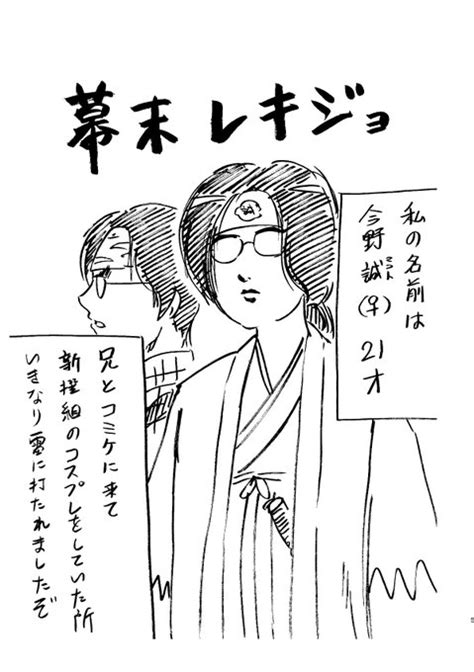 幕末レキジョ
私の名前は
今野誠(マコト)(♀)21才
兄とコミケに来て
新撰組のコスプレをしていた所
いきなり雷に打たれましたぞ